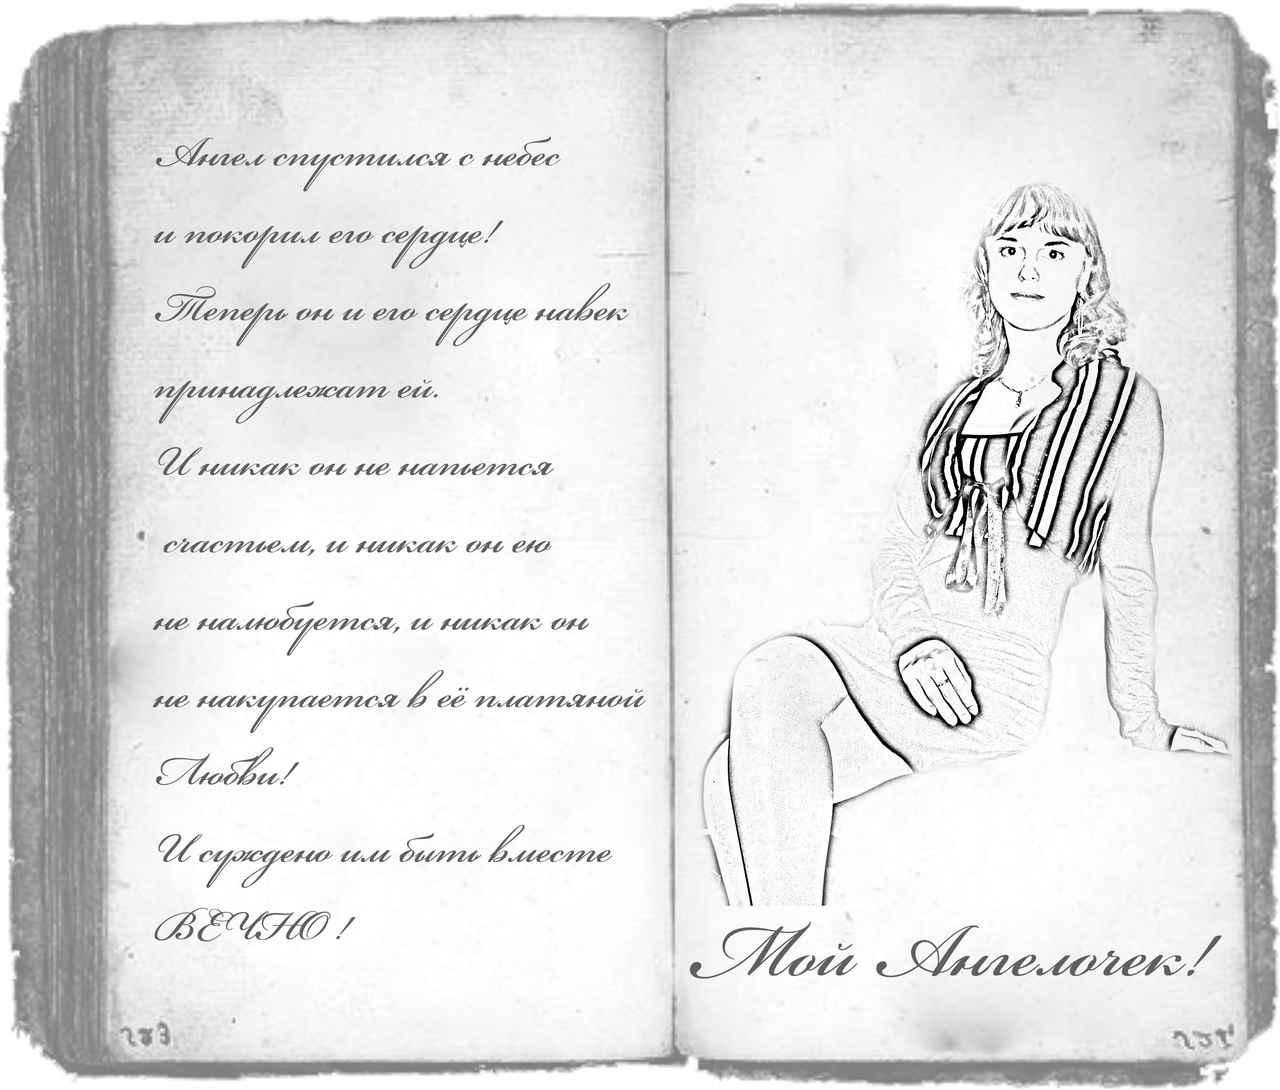 Ангел спустился с небес
и покорил его сердце!
Теперь он и его сердце навек
принадлежат ей.
И никак он не напьется
счастьем, и никак он ею
не налюбуется, и никак он
не накупается в её платяной
Любви!
И суждено им быть вместе
ВЕЧНО !
Мой Ангелочек!